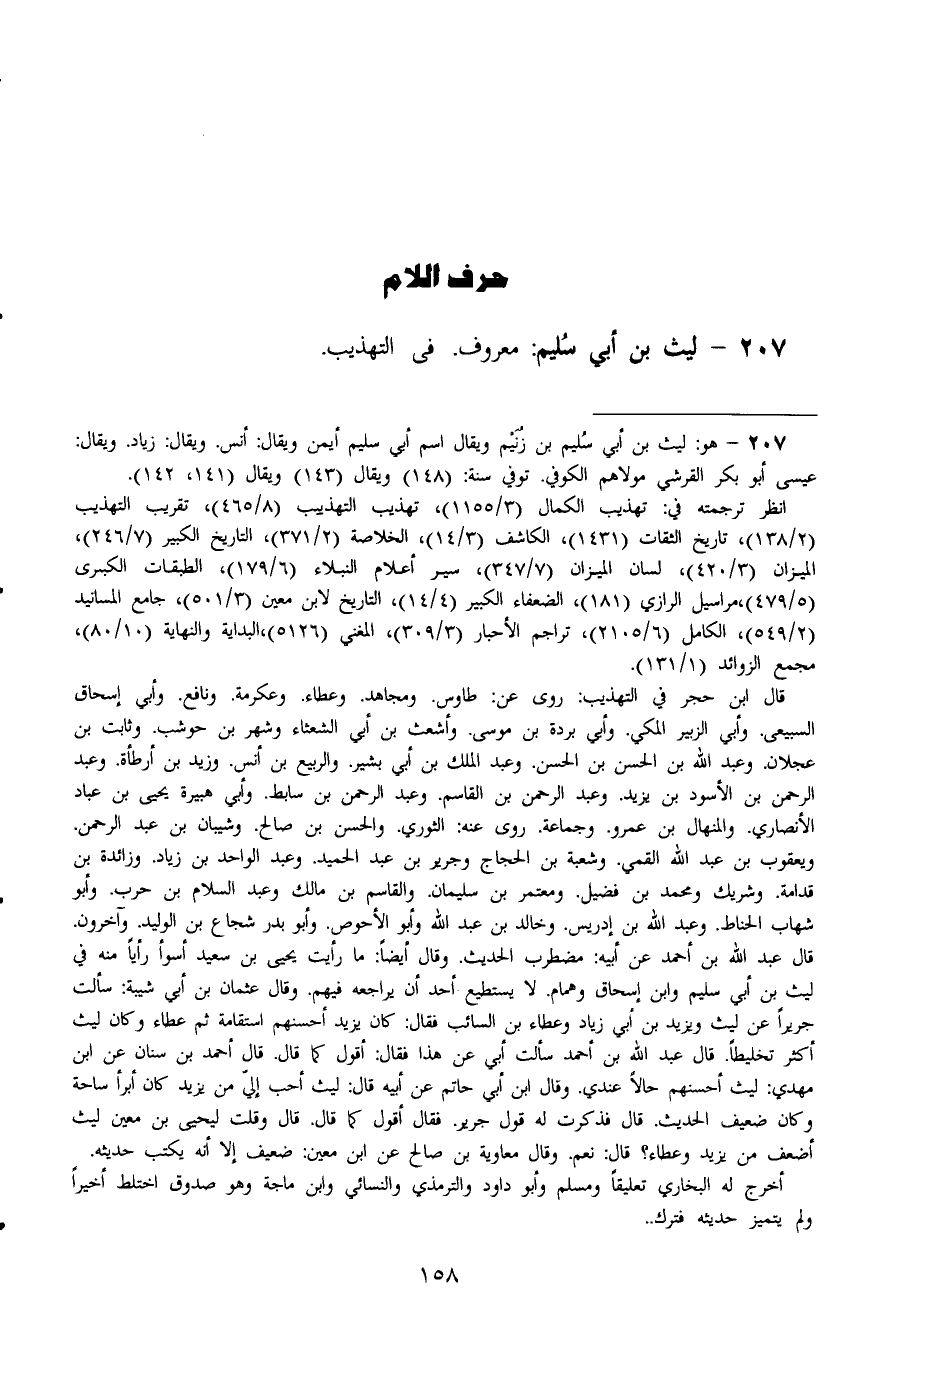 حرف اللام
٢٠٧ - ليث بن أبي سُليم: معروف. في التهذيب.
٢٠٧ - هو: ليث بن أبي سُليم بن زُنَيْم ويقال اسم أبي سليم أيمن ويقال: أنس. ويقال: زياد. ويقال:
عيسى أبو بكر القرشي مولاهم الكوفي. توفي سنة: (١٤٨) ويقال (١٤٣) ويقال (١٤١، ١٤٢).
انظر ترجمته في: تهذيب الكمال (١١٥٥/٣)، تهذيب التهذيب (٤٦٥/٨)، تقريب التهذيب
(١٣٨/٢)، تاريخ الثقات (١٤٣١)، الكاشف (١٤/٣)، الخلاصة (٣٧١/٢)، التاريخ الكبير (٢٤٦/٧)،
الميزان (٤٢٠/٣)، لسان الميزان (٣٤٧/٧)، سير أعلام النبلاء (١٧٩/٦)، الطبقات الكبرى
(٤٧٩/٥)،مراسيل الرازي (١٨١)، الضعفاء الكبير (١٤/٤)، التاريخ لابن معين (٥٠١/٣)، جامع المسانيد
(٥٤٩/٢)، الكامل (٢١٠٥/٦)، تراجم الأحبار (٣٠٩/٣)، المغني (٥١٢٦)،البداية والنهاية (٨٠/١٠)،
مجمع الزوائد (١٣١/١).
قال ابن حجر في التهذيب: روى عن: طاوس. ومجاهد. وعطاء. وعكرمة. ونافع. وأبي إسحاق
السبيعى. وأبي الزبير المكي. وأبي بردة بن موسى. وأشعث بن أبي الشعثاء وشهر بن حوشب. وثابت بن
عجلان. وعبد الله بن الحسن بن الحسن. وعبد الملك بن أبي بشير. والربيع بن أنس. وزيد بن أرطأة. وعبد
الرحمن بن الأسود بن يزيد. وعبد الرحمن بن القاسم. وعبد الرحمن بن سابط. وأبي هبيرة يحيى بن عباد
الأنصاري. والمنهال بن عمرو. وجماعة. روى عنه: الثوري. والحسن بن صالح. وشيبان بن عبد الرحمن.
ويعقوب بن عبد الله القمي. وشعبة بن الحجاج وجرير بن عبد الحميد. وعبد الواحد بن زياد. وزائدة بن
قدامة. وشريك ومحمد بن فضيل. ومعتمر بن سليمان. والقاسم بن مالك وعبد السلام بن حرب. وأبو
شهاب الحناط. وعبد الله بن إدريس. وخالد بن عبد الله وأبو الأحوص. وأبو بدر شجاع بن الوليد. وآخرون.
قال عبد الله بن أحمد عن أبيه: مضطرب الحديث. وقال أيضاً: ما رأيت يحيى بن سعيد أسوأ رأياً منه في
ليث بن أبي سليم وابن إسحاق وهمام. لا يستطيع أحد أن يراجعه فيهم. وقال عثمان بن أبي شيبة: سألت
جريراً عن ليث ويزيد بن أبي زياد وعطاء بن السائب فقال: كان يزيد أحسنهم استقامة ثم عطاء وكان ليث
أكثر تخليطاً. قال عبد الله بن أحمد سألت أبي عن هذا فقال: أقول كما قال. قال أحمد بن سنان عن ابن
مهدي: ليث أحسنهم حالاً عندي. وقال ابن أبي حاتم عن أبيه قال: ليث أحب إليّ من يزيد كان أبرأ ساحة
وكان ضعيف الحديث. قال فذكرت له قول جرير. فقال أقول كما قال. قال وقلت ليحيى بن معين ليث
أضعف من يزيد وعطاء؟ قال: نعم. وقال معاوية بن صالح عن ابن معين: ضعيف إلا أنه يكتب حديثه.
أخرج له البخاري تعليقاً ومسلم وأبو داود والترمذي والنسائي وابن ماجة وهو صدوق اختلط أخيراً
ولم يتميز حديثه فترك..
١٥٨